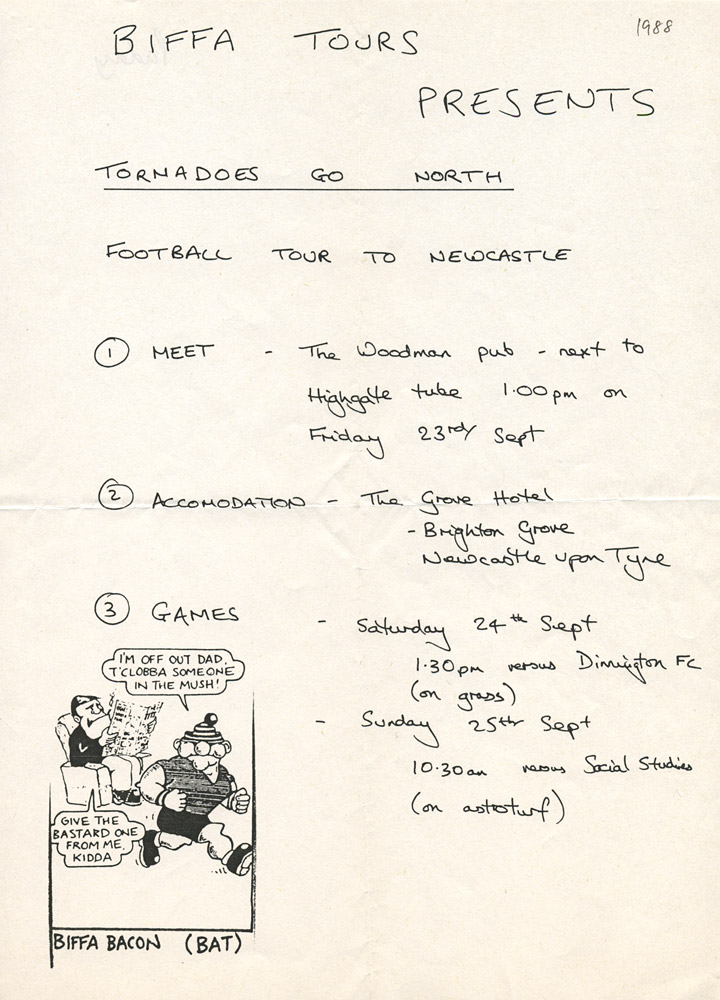 1988
BIFFA TOURS
PRESENTS
TORNADOES GO NORTH
FOOTBALL TOUR TO NEWCASTLE
① MEET - The Woodman pub - next to
Highgate tube 1.00pm on
Friday 23rd Sept
② ACCOMODATION - The Grove Hotel
- Brighton Grove
Newcastle upon Tyne
③ GAMES - Saturday 24th Sept
1.30pm versus Dinnington FC
(on grass)
- Sunday 25th Sept
10.30am versus Social Studies
(on astroturf)
I'M OFF OUT DAD,
T'CLOBBA SOMEONE
IN THE MUSH!
GIVE THE
BASTARD ONE
FROM ME,
KIDDA
BIFFA BACON (BAT)